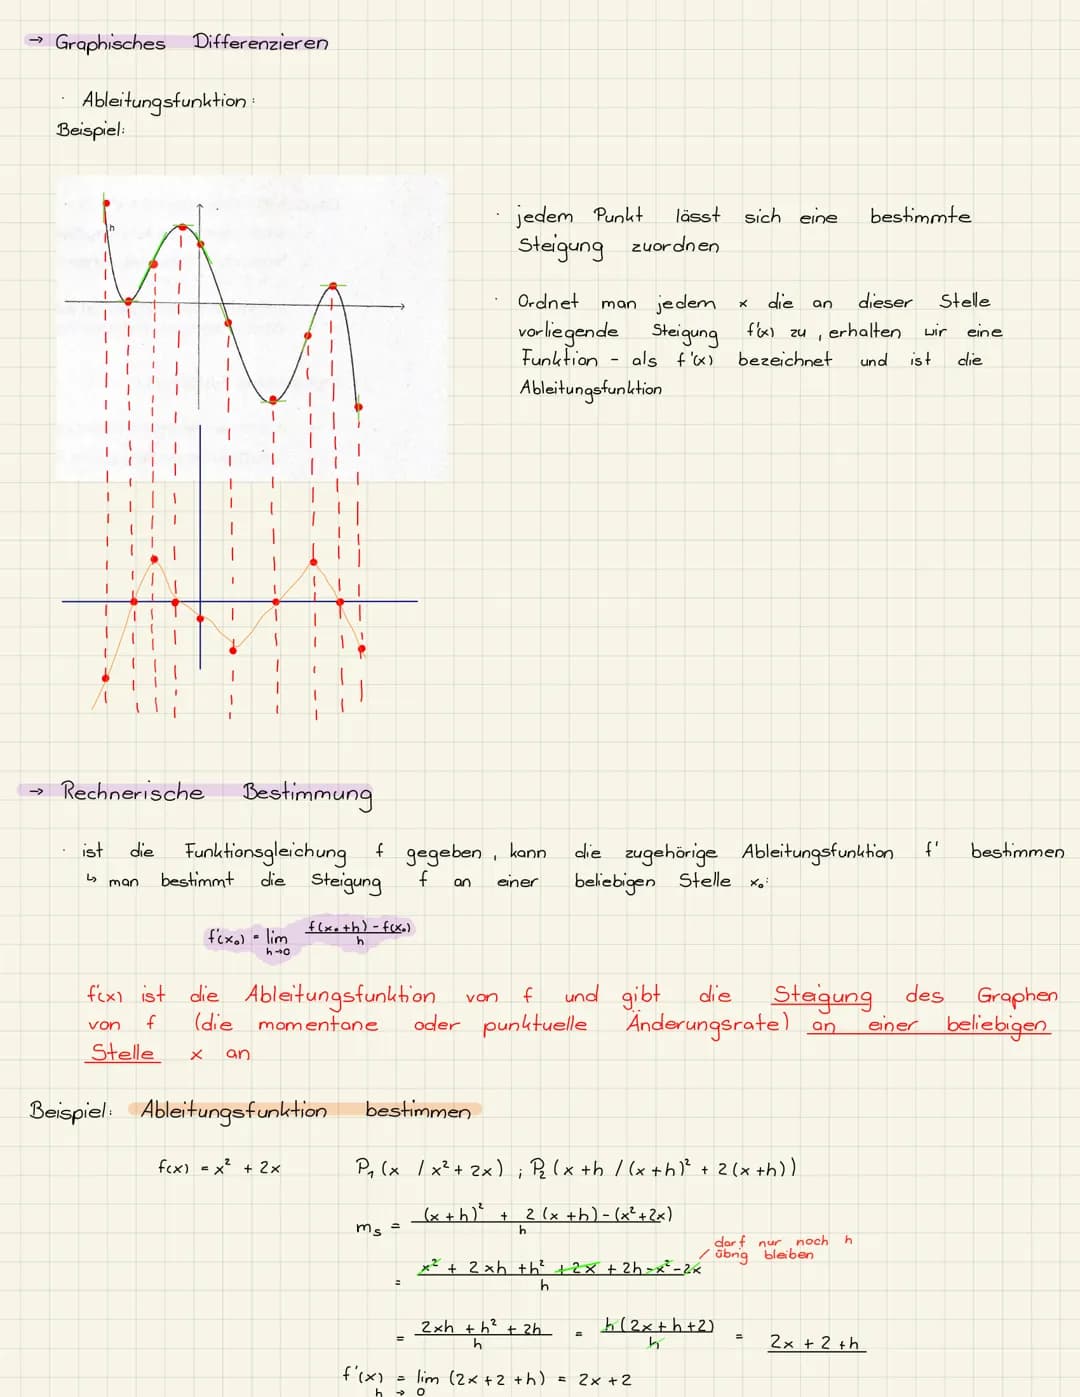 → Graphisches Differenzieren
· Ableitungsfunktion:
Beispiel:
h
· jedem Punkt lässt sich eine bestimmte
Steigung zuordnen
· Ordnet man jedem x die an dieser Stelle
vorliegende Steigung f'(x) zu, erhalten wir eine
Funktion - als f'(x) bezeichnet und ist die
Ableitungsfunktion
→ Rechnerische Bestimmung
· ist die Funktionsgleichung f gegeben, kann die zugehörige Ableitungsfunktion f' bestimmen
↳ man bestimmt die Steigung f an einer beliebigen Stelle x₀:
f'(x₀) = lim h→0 f(x₀+h) - f(x₀) / h
f'(x) ist die Ableitungsfunktion von f und gibt die Steigung des Graphen
von f (die momentane oder punktuelle Änderungsrate) an einer beliebigen
Stelle x an
Beispiel: Ableitungsfunktion bestimmen
f(x) = x² + 2x P₁ (x / x² + 2x) ; P₂ (x + h / (x + h)² + 2 (x + h))
mₛ = (x + h)² + 2 (x + h) - (x² + 2x) / h
darf nur noch h
übrig bleiben
= x² + 2xh + h² + 2x + 2h - x² - 2x / h
= 2xh + h² + 2h / h = h (2x + h + 2) / h = 2x + 2 + h
f'(x) = lim h → 0 (2x + 2 + h) = 2x + 2